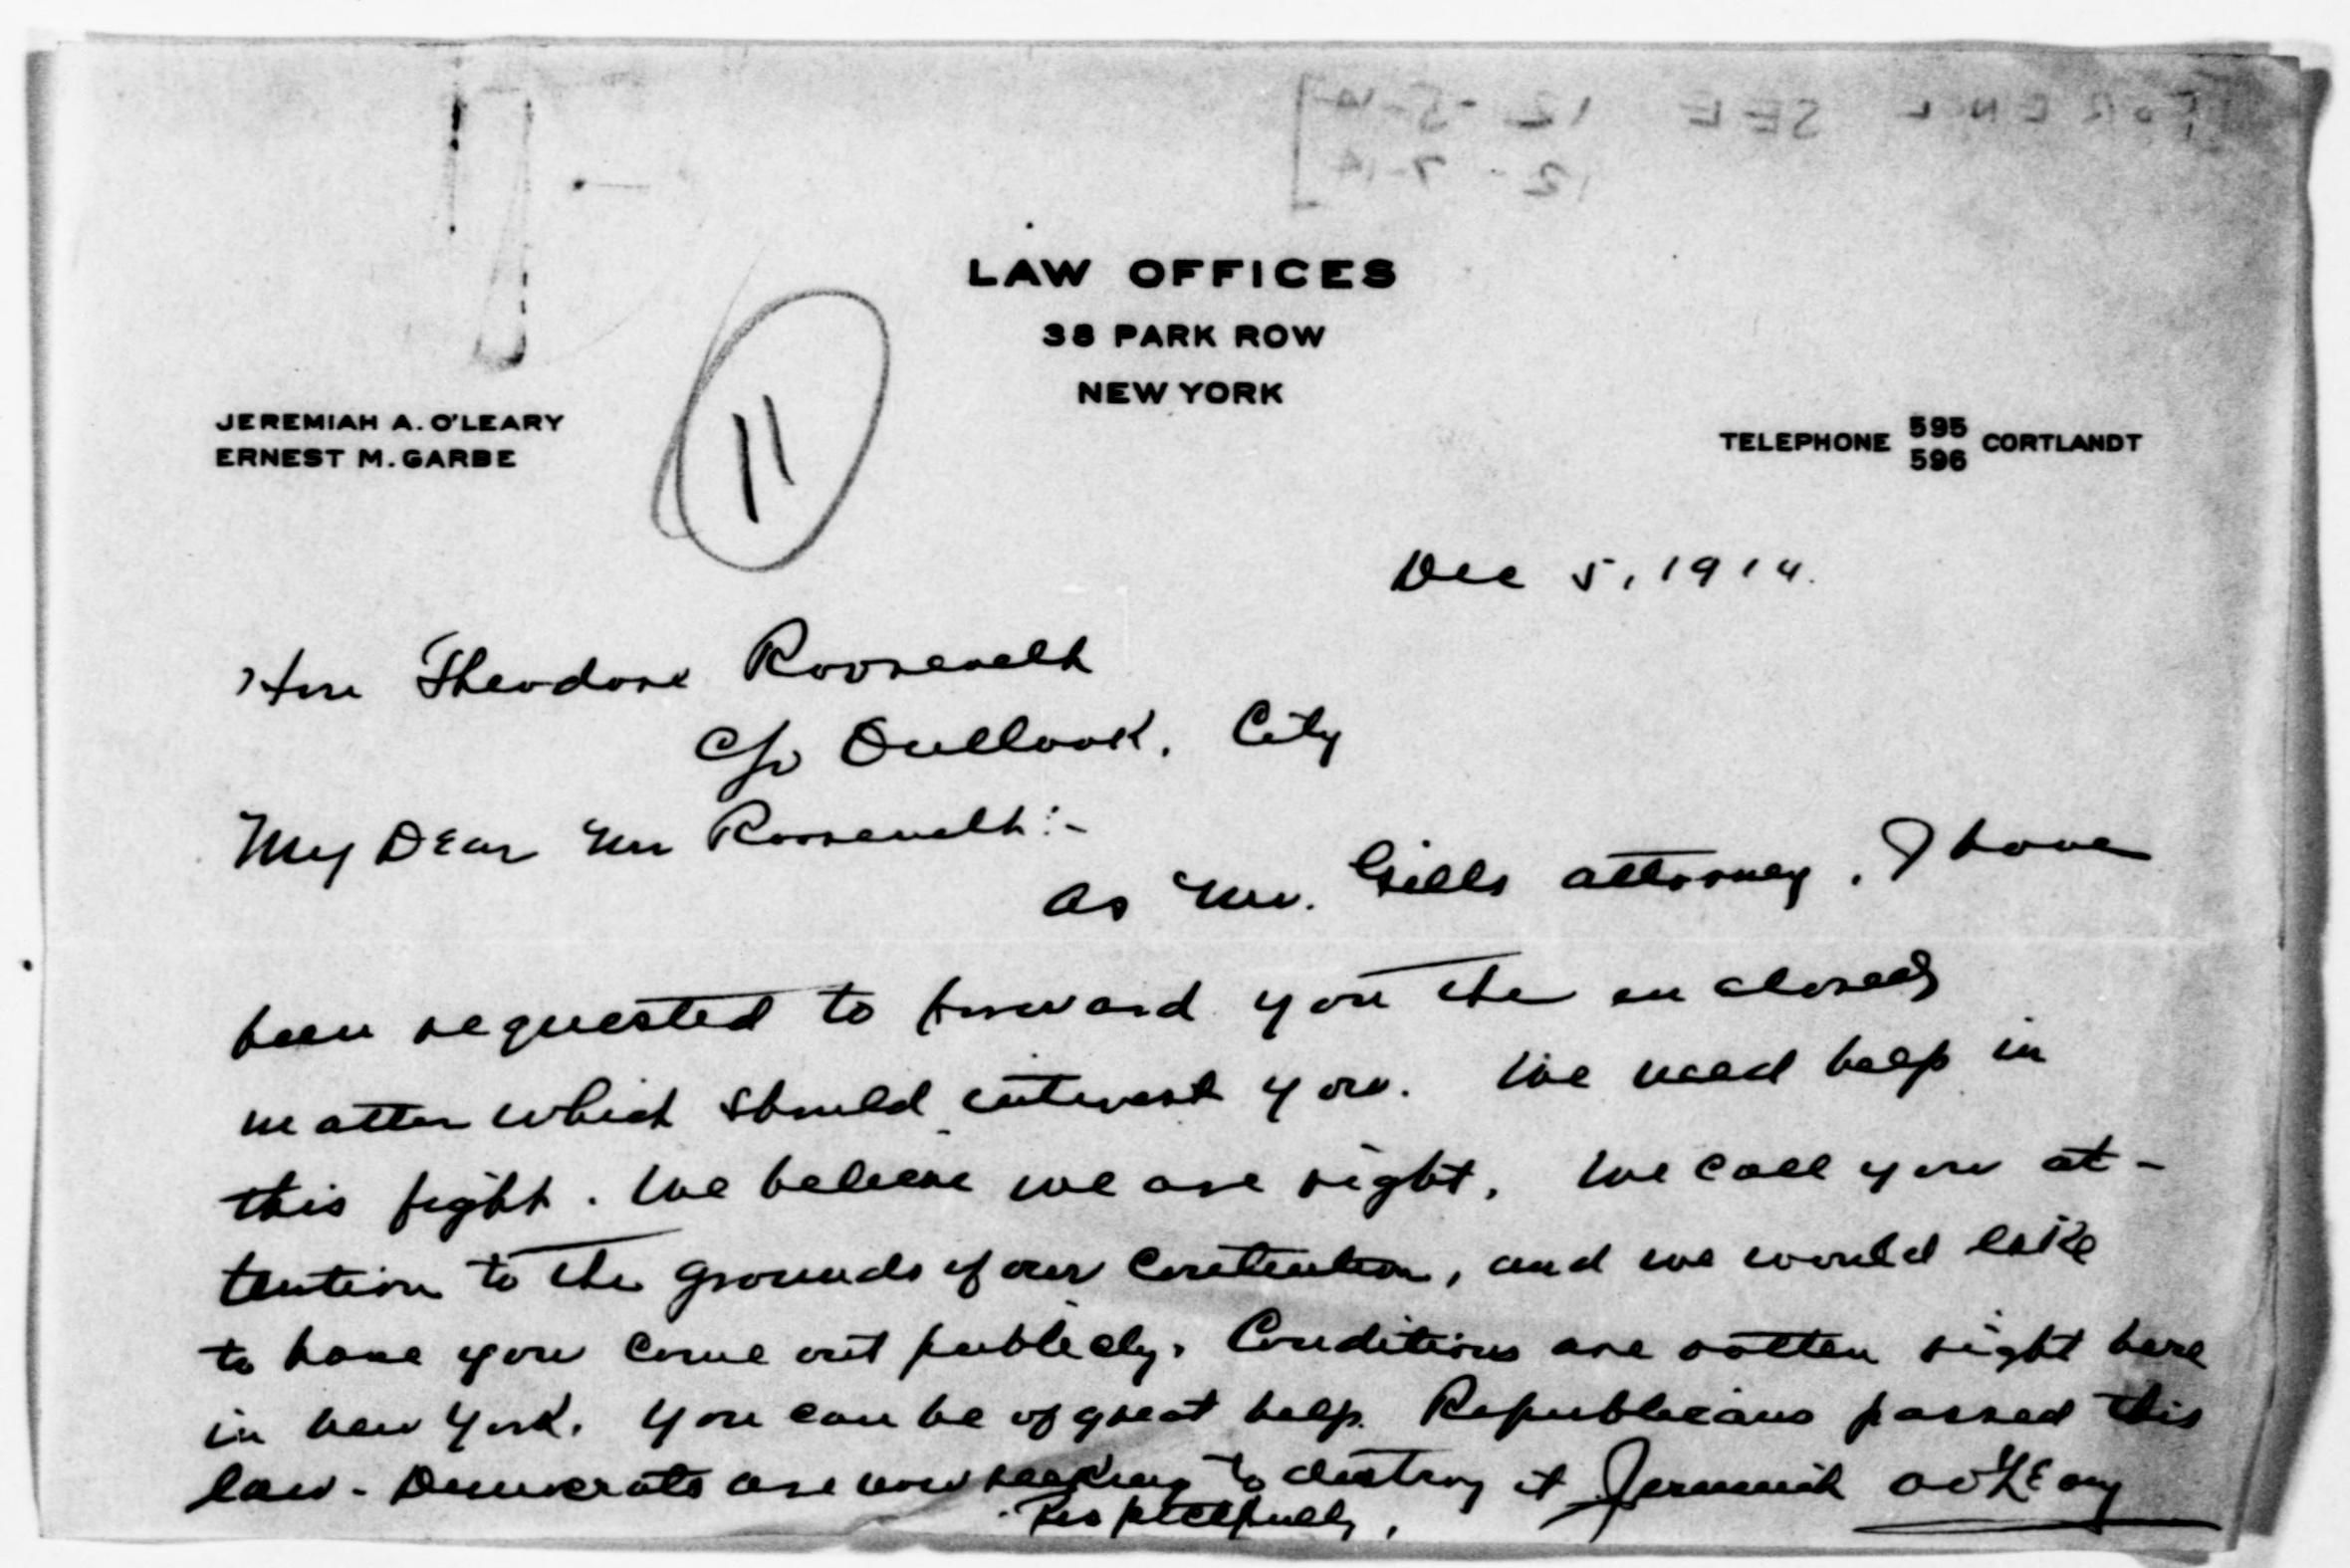 [FOR ENCL SEE 12-5-14
12-7-14
LAW OFFICES
38 PARK ROW
NEW YORK
JEREMIAH A. O'LEARY
ERNEST M. GARBE
11
TELEPHONE 595 596 CORTLANDT
Dec 5, 1914.
Hon Theodore Roosevelt
c/o Outlook, City
My Dear Mr Roosevelt:-
As Mr. Gills attorney, I have
been requested to forward you the enclosed
matter which should interest you. We need help in
this fight. We believe we are right. We call your at-
tention to the grounds of our contention, and we would like
to have you come out publicly. Conditions are rotten right here
in New York. You can be of great help. Republicans passed this
law - Democrats are now seeking to destroy it Jeremiah A O'Leary
Respectfully,